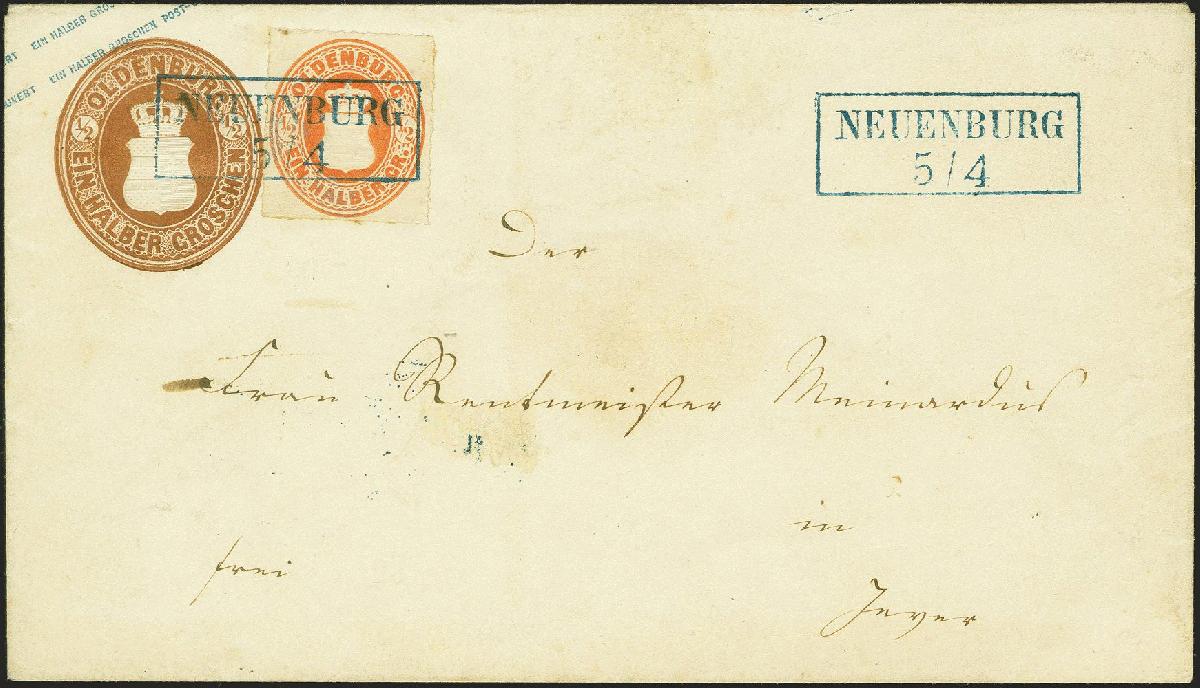 EIN HALBER GROS
UVERT EIN HALBER GROSCHEN POST-C
OLDENBURG
½ ½
EIN HALBER GROSCHEN
OLDENBURG
½ ½
EIN HALBER GR.
NEUENBURG
5/4
NEUENBURG
5/4
Der
Frau Rentmeister Meinardus
in
frei
Jever